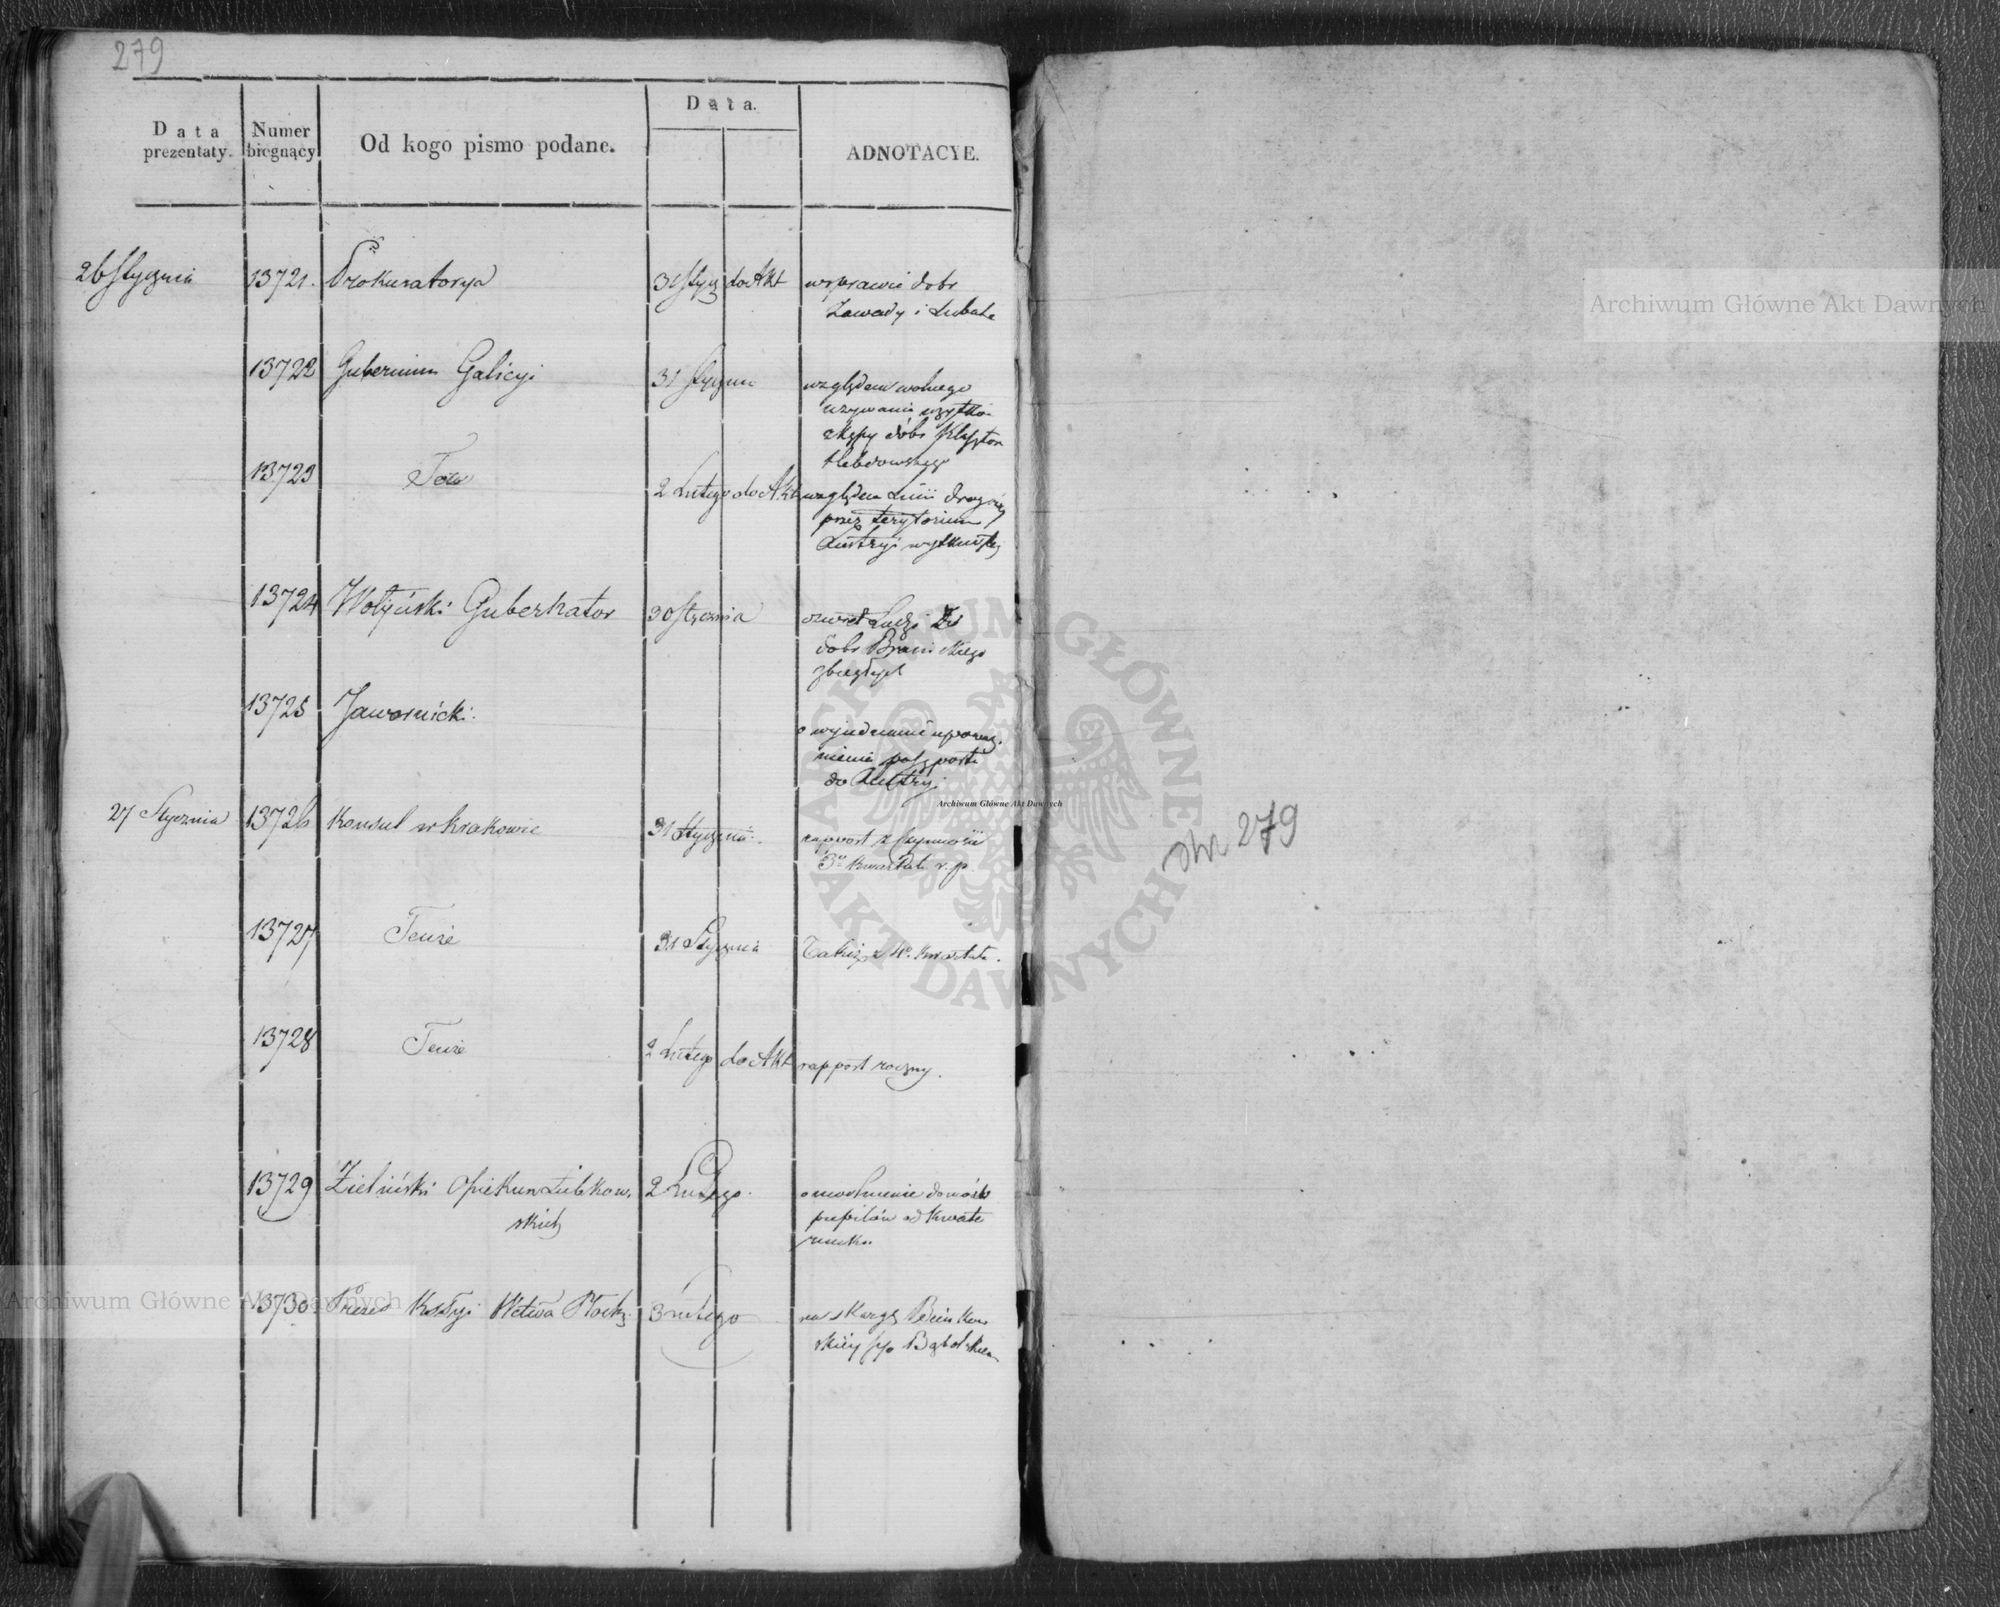 279
Data prezentaty.
Numer biegnący
Od kogo pismo podane.
Data.
ADNOTACYE.
26 Stycznia 13721. Prokuratorya 31 Stycz do Akt w sprawie dobr
Zawady i Lubate
13722 Gubernium Galicyi 31 Stycznia względem wolnego
używania użytko
dóbr Klasztor
13723 2 Lutego do Akt względem Linii
przez terytorium
Austryi
13724 Wołyński Gubernator 30 Stycznia zwrot Ludzi Ze
dobr Branickiego
zbiegłych
13725 Jawornicki. o wyjednanie upoważ.
nienia paszportu
do Austryi
27 Stycznia 13726 Konsul w Krakowie 31 Stycznia. rapport z czynności
3o kwartału r. p.
13727 Tenże 31 Stycznia Takiż z 4o kwartału.
13728 Tenże 2 Lutego do Akt rapport roczny.
13729 Zieliński Opiekun Zubkow.
skich 2 Lutego. o uwolnienie domów
pupilów od kwate
runku
13730 Prezes Kssyi Wctwa Płock. 3 Lutego na skargę
skiéy
str 279
Archiwum Główne Akt Dawnych
Archiwum Główne Akt Dawnych
Archiwum Główne Akt Dawnych
ARCHIWUM GŁÓWNE AKT DAWNYCH